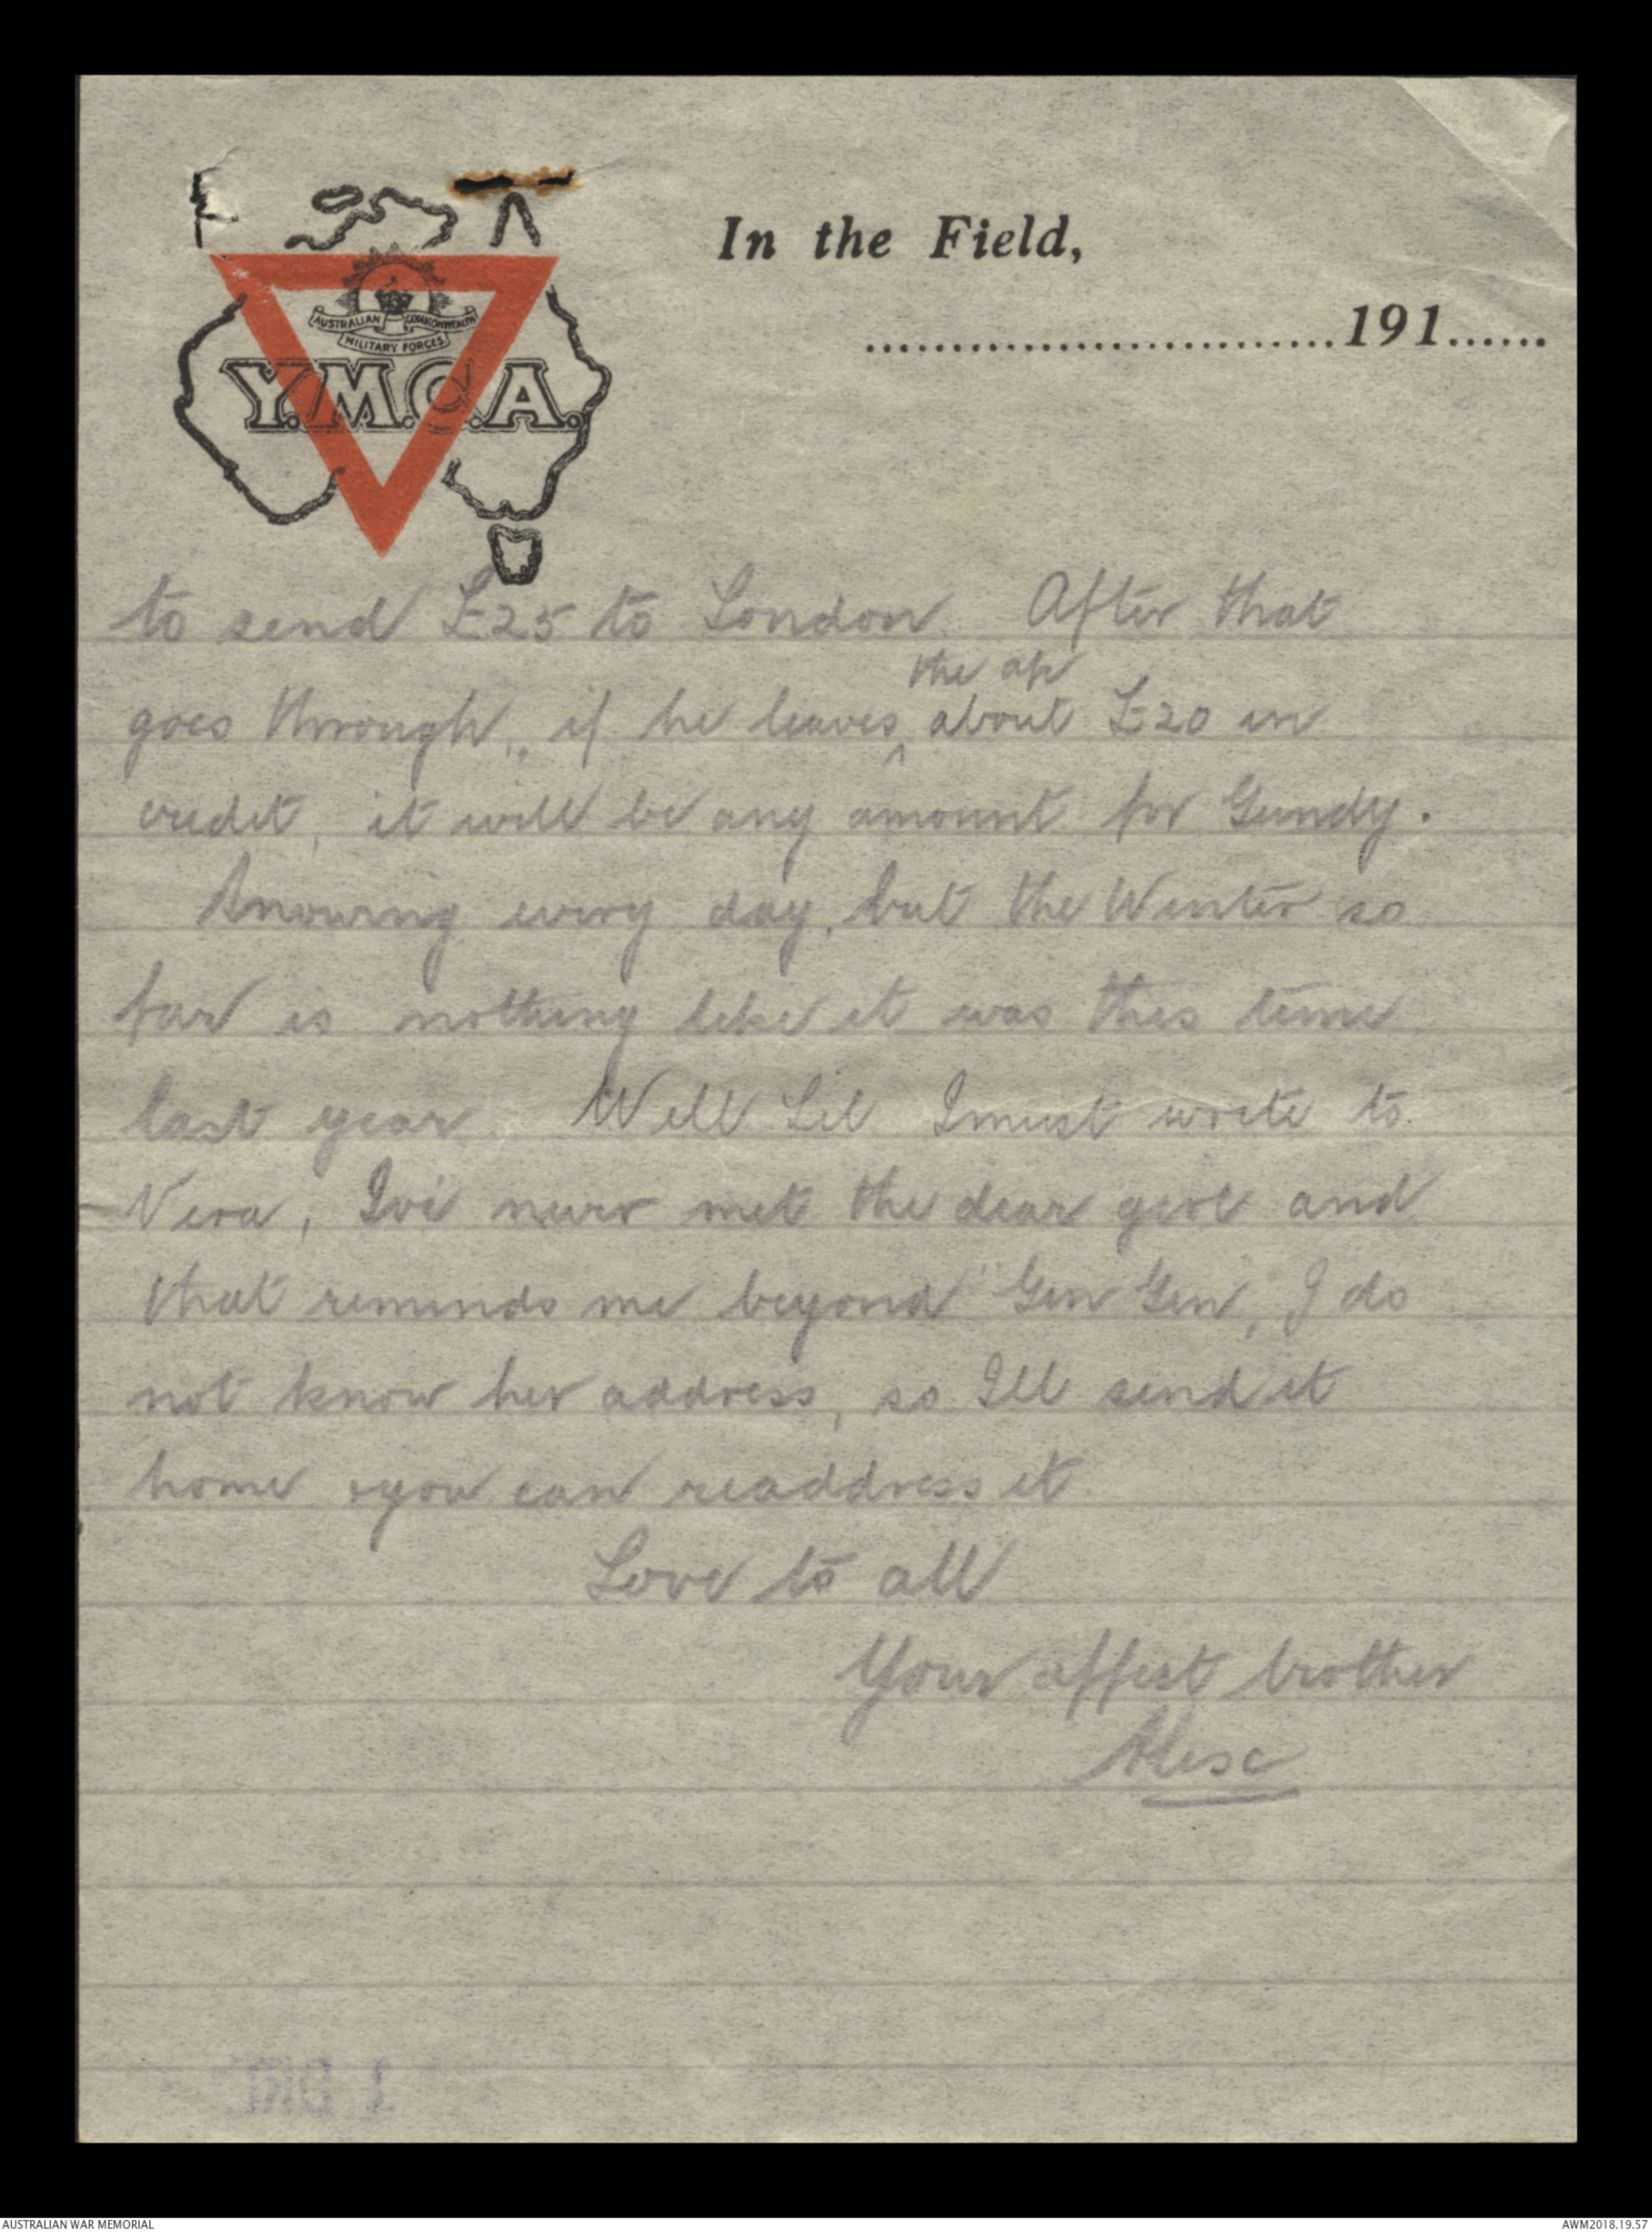 In the Field,
............................191......
AUSTRALIAN COMMONWEALTH
MILITARY FORCES
Y.M.C.A.
to send £25 to London. After that
the a/c
goes through, if he leaves ^ about £20 in
credit, it will be any amount for Gundy.
Snowing every day, but the Winter so
far is nothing like it was this time
last year. Well Lil I must write to
Vera, I've never met the dear girl and
that reminds me beyond "Gen Gen", I do
not know her address, so I'll send it
home & you can readdress it
Love to all
Your affect brother
Alec
AUSTRALIAN WAR MEMORIAL
AWM2018.19.57